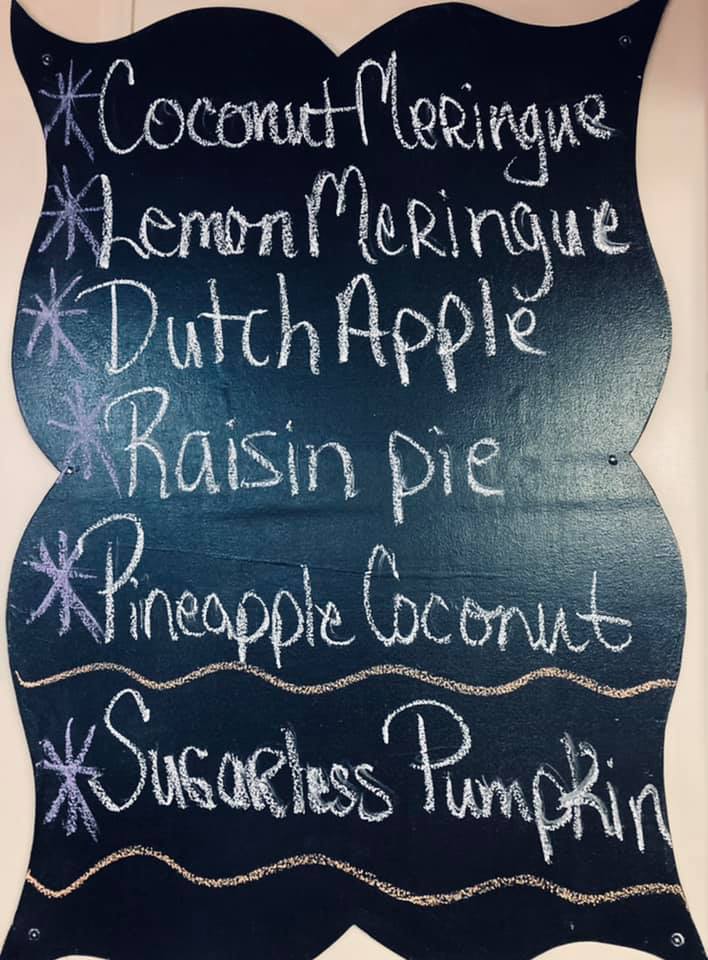 * Coconut Meringue
* Lemon Meringue
* Dutch Apple
* Raisin pie
* Pineapple Coconut
* Sugarless Pumpkin